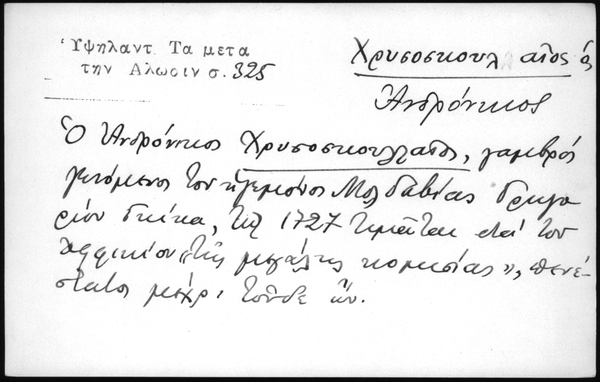 Ὑψηλαντ. Τα μετα
την Αλωσιν σ. 325
Χρυσοσκουλαῖος ὁ
Ἀνδρόνικος
Ὁ Ἀνδρόνικος Χρυσοσκουλλαῖος, γαμβρός
γενόμενος τοῦ ἡγεμόνος Μολδαβίας Γρηγο
ρίου Γκίκα, τῷ 1727 τιμᾶται διά τοῦ
ὀφφικίου „τῆς μεγάλης κομισίας", πενέ-
στατος μέχρι τοῦδε ὤν.